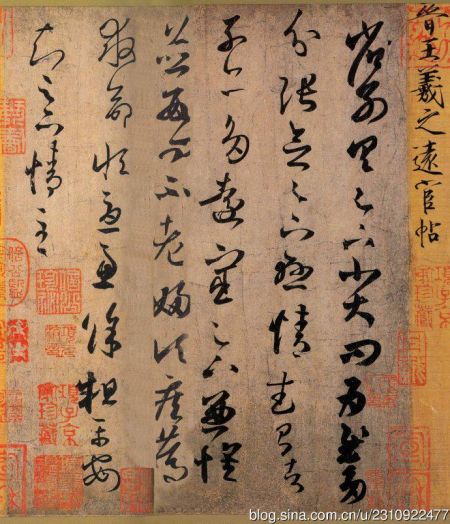 晉王羲之遠宦帖
省別具足下小大問爲慰多
分張念足下懸情武昌諸
子亦多遠宦足下兼懷
並數問不老婦頃疾篤
救命恒憂慮餘粗平安
知足下情至
blog.sina.com.cn/u/2310922477